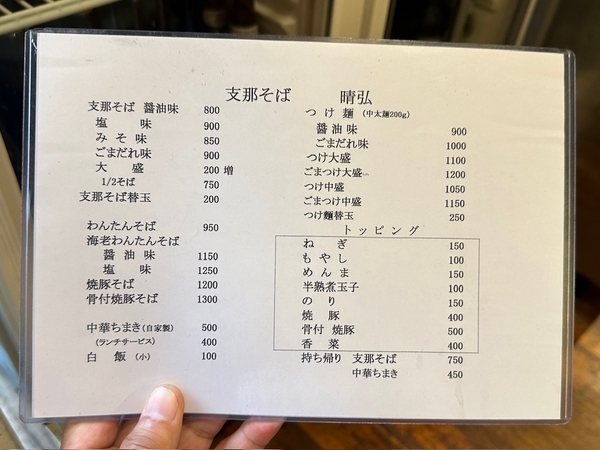 支那そば 晴弘
支那そば 醤油味 800
塩 味 900
みそ味 850
ごまだれ味 900
大 盛 200 増
1/2そば 750
支那そば替玉 200
わんたんそば 950
海老わんたんそば
醤油味 1150
塩 味 1250
焼豚そば 1200
骨付焼豚そば 1300
中華ちまき(自家製) 500
(ランチサービス) 400
白 飯 (小) 100
つけ麺 (中太麺200g)
醤油味 900
ごまだれ味 1000
つけ大盛 1100
ごまつけ大盛 1200
つけ中盛 1050
ごまつけ中盛 1150
つけ麺替玉 250
トッピング
ねぎ 150
もやし 100
めんま 150
半熟煮玉子 100
のり 150
焼 豚 400
骨付 焼豚 500
香 菜 400
持ち帰り 支那そば 750
中華ちまき 450